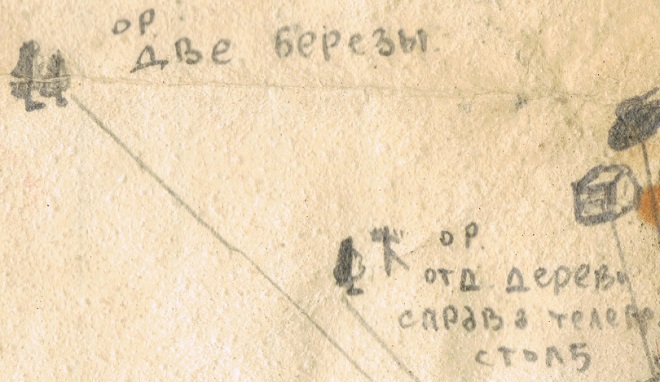 ор.
две березы
ор.
отд. дерев
справа телегр
столб